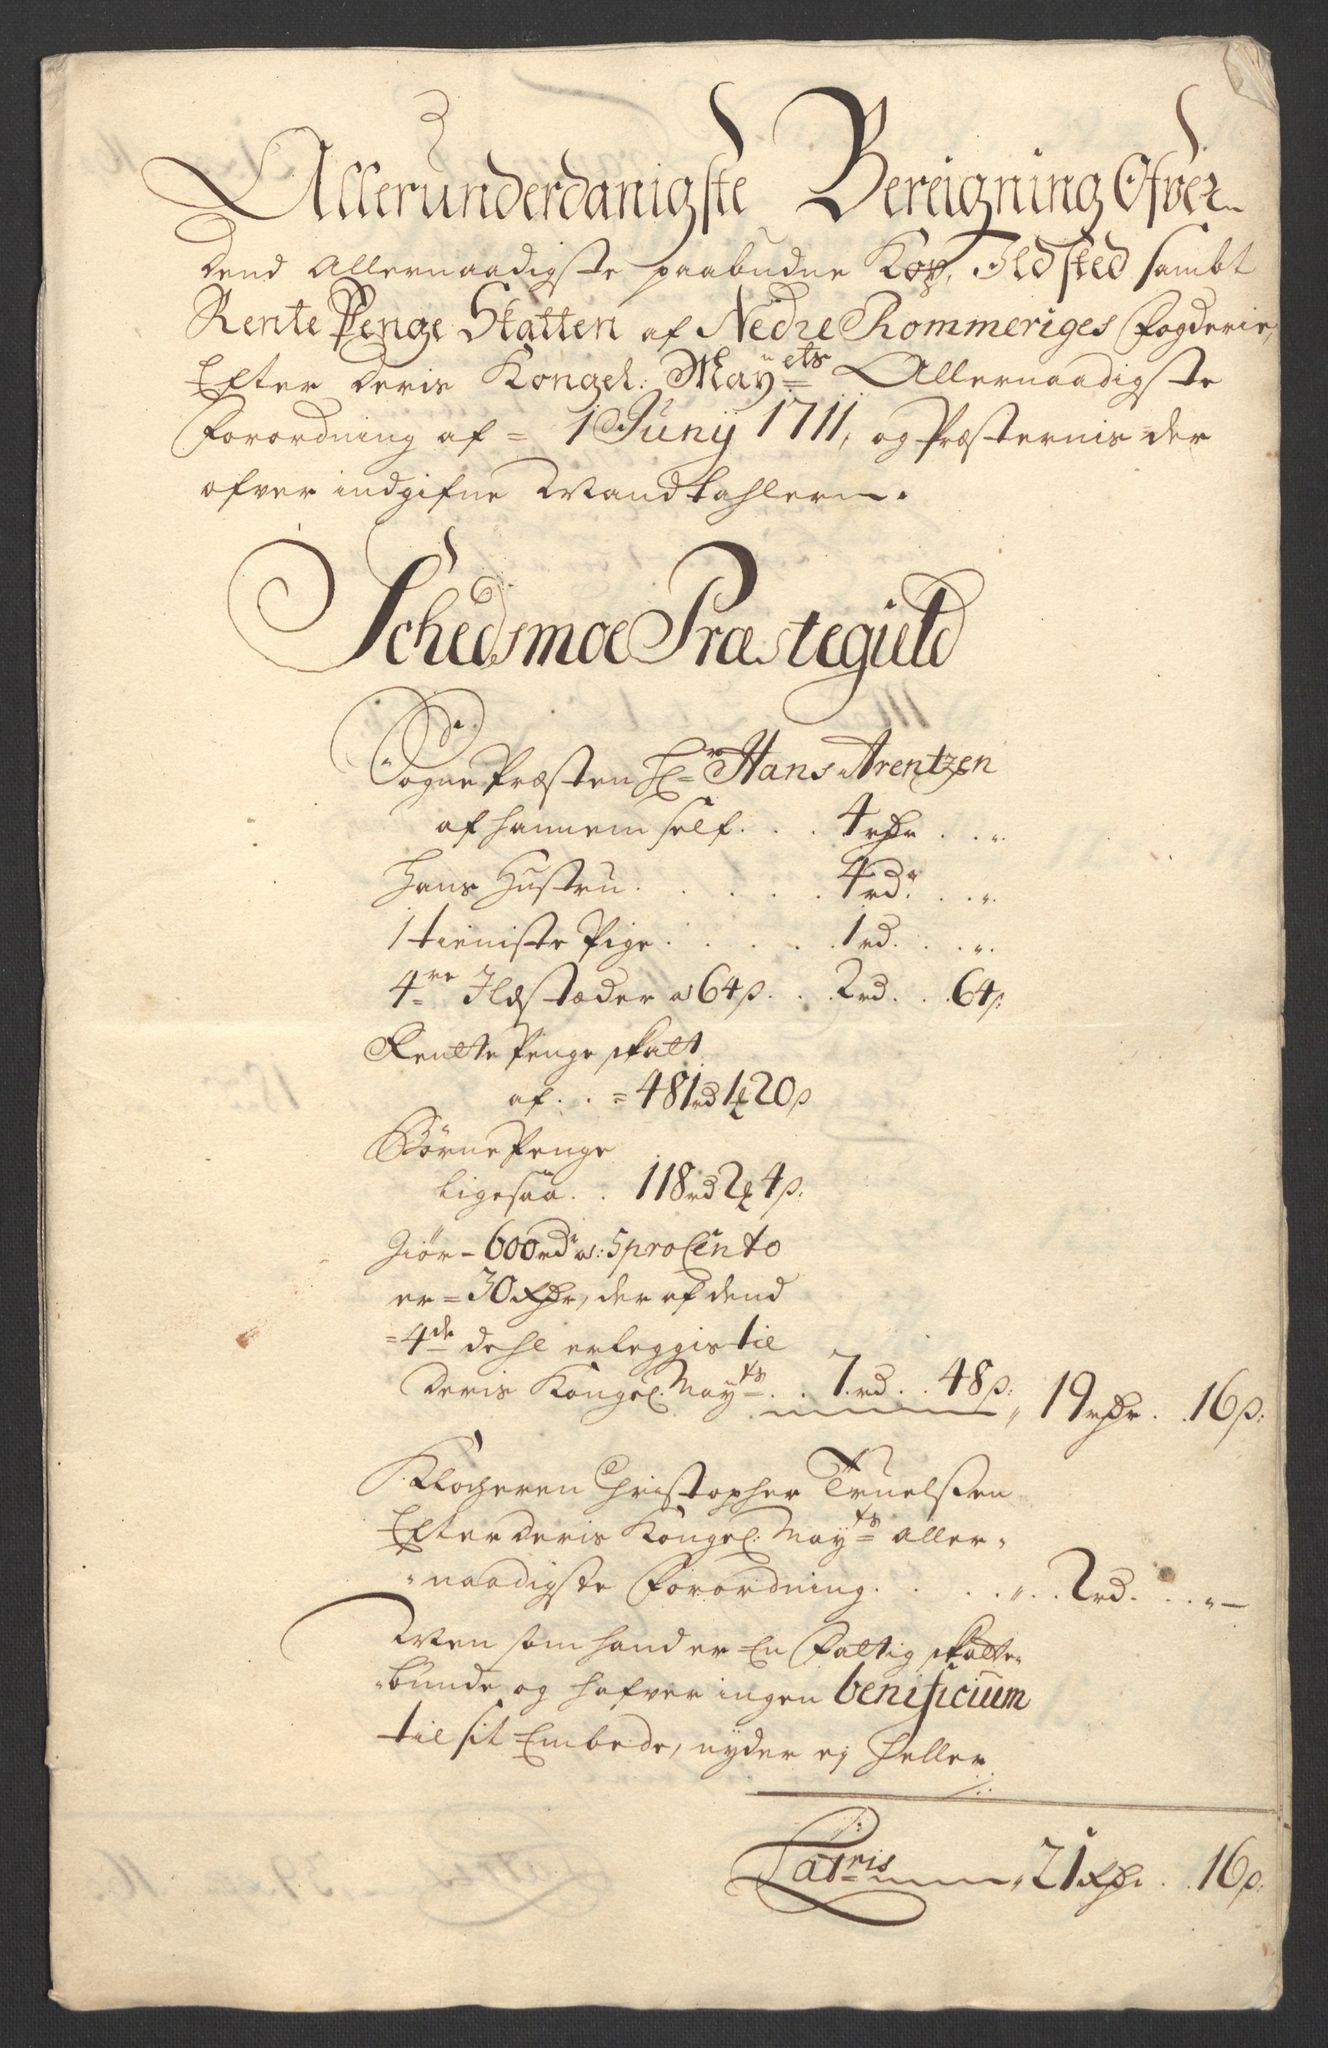 Allerunderdanigste Bereigning Ofver
dend Allernaadigste paabudne Kop, Ildsted sambt
Rente Penge Skatten af Nedre Rommeriges Fogderie,
Efter Deris Kongel: Mayets Allernaadigste
Forordning af 1 Junij 1711, og Præsternis der
ofver indgifne Mandtahler.
Schedsmoe Præstegield
Sogne Præsten Hr Hans Arentzen
af hannem self. . . 4 rdr . . „.
hans Hustru. . . . . 4 rdr . . „.
1 tieniste Pige . . . . 1 rd. . . „.
4re Ildstæder a 64 s. . . 2 rd. . . 64 s:
Rentte Penge skatt
af. . = 481 rd 1 ℔ 20 s
Børne Penge
ligesaa. . 118 rd 2 ℔ 4 s:
Giør - 600 rdr a: 5 pro Cento
er = 30 Rdr, der af dend
= 4de dehl erleggis til
Deris Kongel. Mayts . . 7 rd. . 48 s: „ 19 rdr . . 16 s:
Klocheren Christopher Truelsen
Efter Deris Kongel: Mayts aller=
=naadigste Forordning. . . . „. . 2 rd. . . „ —
Men som hand er En Fattig skatte=
=bunde og hafver ingen benificium
til sit Embede, nyder ej heller
Latris „ 21 Rdr . . 16 s: